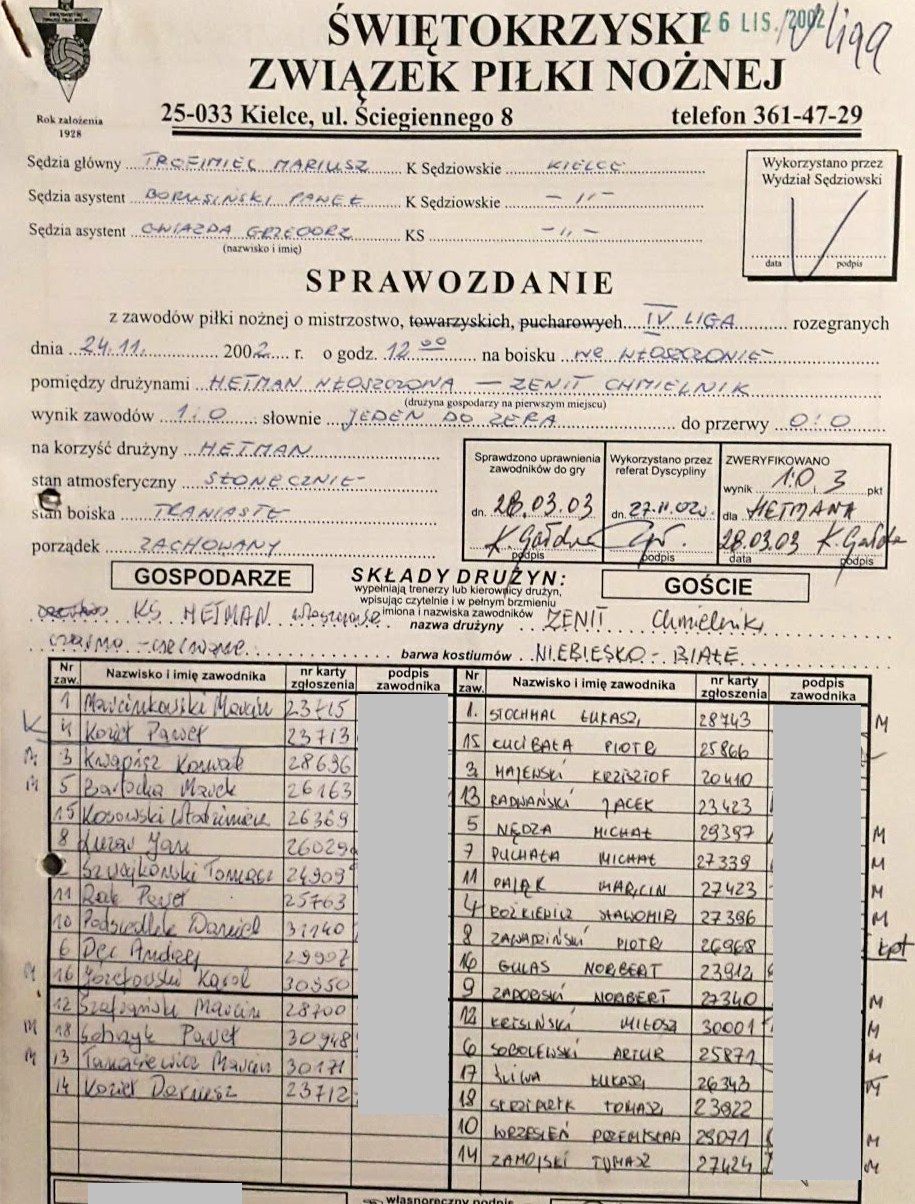 ŚWIĘTOKRZYSKI
26 LIS. 2002
IV liga
ZWIĄZEK PIŁKI NOŻNEJ
25-033 Kielce, ul. Ściegiennego 8 telefon 361-47-29
Rok założenia
1928
Sędzia główny TROFIMIEC MARIUSZ K Sędziowskie KIELCE
Sędzia asystent BORUSIŃSKI PAWEŁ K Sędziowskie - 11 -
Sędzia asystent GWIAZDA GRZEGORZ KS - 11 -
(nazwisko i imię)
Wykorzystano przez
Wydział Sędziowski
data podpis
SPRAWOZDANIE
z zawodów piłki nożnej o mistrzostwo, towarzyskich, pucharowych IV LIGA rozegranych
dnia 24.11. 2002 r. o godz. 12 00 na boisku WE WŁOSZCZOWIE
pomiędzy drużynami HETMAN WŁOSZCZOWA - ZENIT CHMIELNIK
(drużyna gospodarzy na pierwszym miejscu)
wynik zawodów 1:0 słownie JEDEN DO ZERA do przerwy 0:0
na korzyść drużyny HETMAN
stan atmosferyczny SŁONECZNIE
stan boiska TRAWIASTE
porządek ZACHOWANY
Sprawdzono uprawnienia
zawodników do gry
dn. 28.03.03
podpis
Wykorzystano przez
referat Dyscypliny
dn. 27.11.02
podpis
ZWERYFIKOWANO
wynik 1:0 3 pkt
dla HETMANA
28.03.03
data podpis
GOSPODARZE
SKŁADY DRUŻYN:
GOŚCIE
wypełniają trenerzy lub kierownicy drużyn,
wpisując czytelnie i w pełnym brzmieniu
imiona i nazwiska zawodników
KS HETMAN Włoszczowa nazwa drużyny ZENIT Chmielnik
czarno-czerwone barwa kostiumów NIEBIESKO-BIAŁE
Nr zaw. Nazwisko i imię zawodnika nr karty zgłoszenia podpis zawodnika
1 Marcinkowski Marcin 23715
4 Kozieł Paweł 23713
3 Kwapisz Konrad 28696
5 Bartocha Marek 26163
15 Kosowski Włodzimierz 26369
8 Kuzas Jan 26029
Szwajkowski Tomasz 24909
11 Rak Paweł 25763
10 Podsiedlik Daniel 31140
6 Dęć Andrzej 29907
16 Józefowski Karol 30350
12 Marcin 28700
18 Sobczyk Paweł 30948
13 Tomasiewicz Marcin 30171
14 Kozieł Dariusz 23712
Nr zaw. Nazwisko i imię zawodnika nr karty zgłoszenia podpis zawodnika
1. STOCHMAL ŁUKASZ 28743 M
15 KUCIBAŁA PIOTR 25866
3 MAJEWSKI KRZISZTOF 20410
13 RADWAŃSKI JACEK 23423
5 NĘDZA MICHAŁ 29397 M
7 PUCHAŁA MICHAŁ 27339 M
11 PAJĄK MARCIN 27423 M
4 ROŻKIEWICZ SŁAWOMIR 27396 M
8 ZAWADZIŃSKI PIOTR 26968 kpt
16 GULAS NORBERT 23912
9 ZADORSKI NORBERT 27340 M
12 MIŁOSZ 30001 M
6 SOBOLEWSKI ARTUR 25871 M
17 ŚLIWA ŁUKASZ 26343 M
18 TOMASZ 23922
10 WRZESIEŃ PRZEMYSŁAW 29071 M
14 ZAMOJSKI TOMASZ 27424 M
własnoręczny podpis